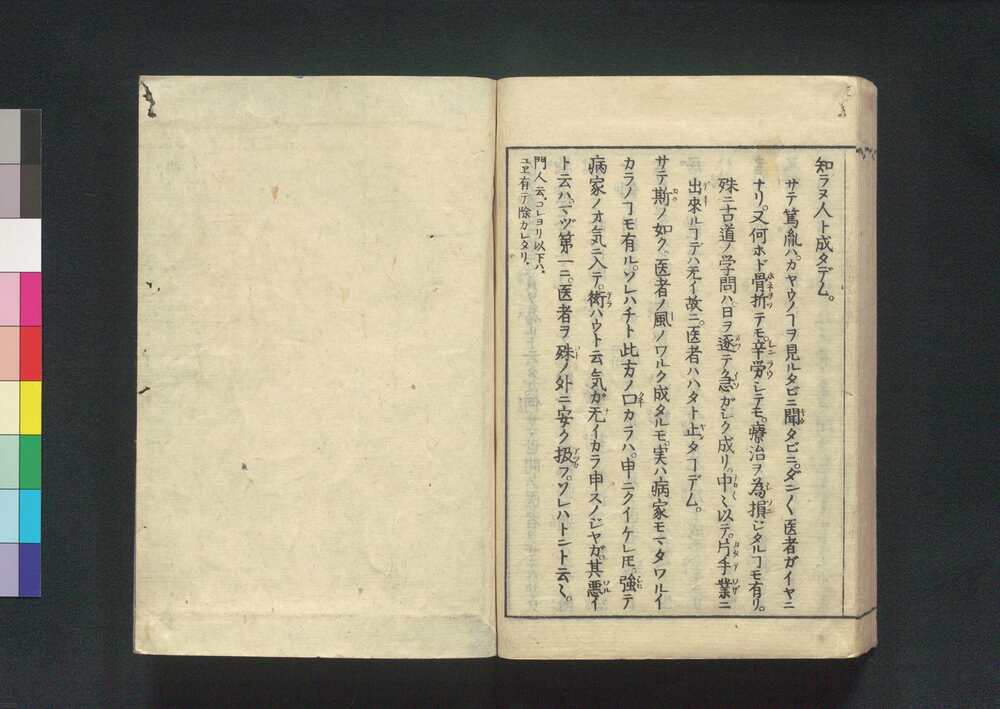 知ラヌ人ト成タデム。
サテ篤胤ハ。カヤウノヿヲ見ルタビニ聞タビニ。ダン〱医者ガイヤニ
ナリ。又何ホド骨折テモ。辛労シテモ。療治ヲ為損ジタルヿモ有リ。
殊ニ古道ノ学問ハ。日ヲ逐テ急ガシク成リ。中〻以テ。片手業ニ
出來ルヿデハ无イ故ニ。医者ハハタト止タヿデム。
サテ斯ノ如ク。医者ノ風ノワルク成タルモ。実ハ病家モマタワルイ
カラノヿモ有ル。ソレハチト此方ノ口カラハ。申ニクイケレ𪜈。強テ
病家ノオ気ニ入テ。術ハウト云気ガ无イカラ申スノジヤガ。其悪イ
ト云ハ。マヅ第一ニ。医者ヲ殊ノ外ニ安ク扱フ。ソレハトント云〻。
門人云。コレヨリ以下ハ。
ユヱ有テ除カレタリ。